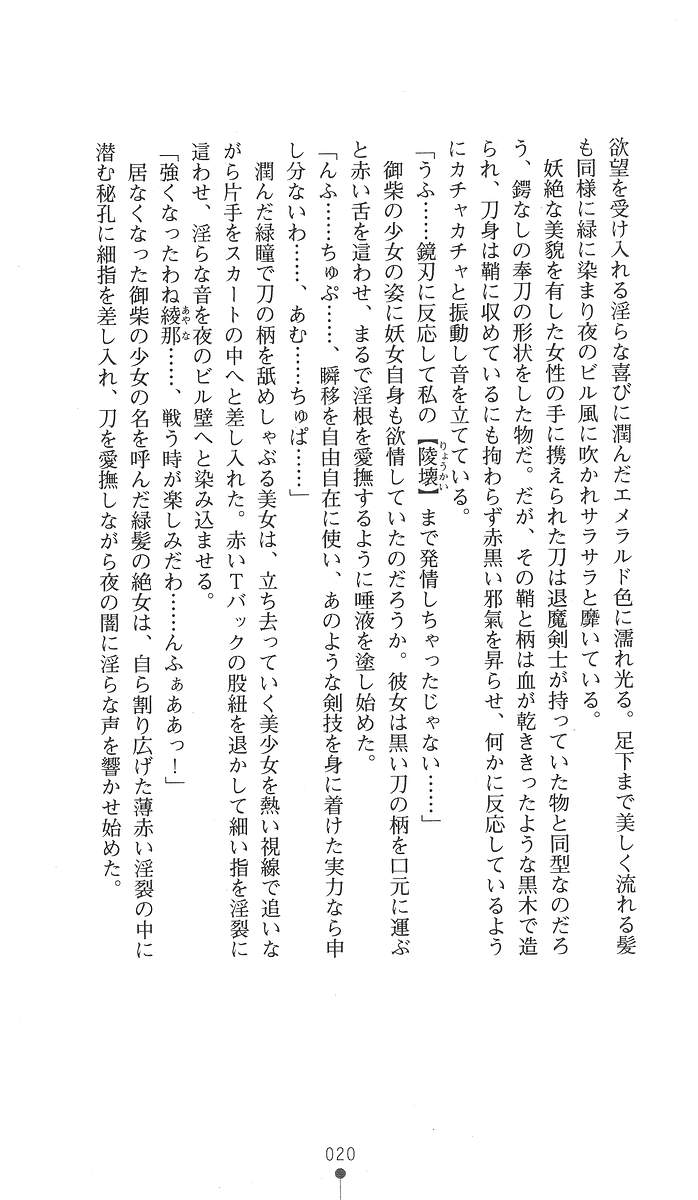 欲望を受け入れる淫らな喜びに潤んだエメラルド色に濡れ光る。足下まで美しく流れる髪
も同様に緑に染まり夜のビル風に吹かれサラサラと靡いている。
妖絶な美貌を有した女性の手に携えられた刀は退魔剣士が持っていた物と同型なのだろ
う、鍔なしの奉刀の形状をした物だ。だが、その鞘と柄は血が乾ききったような黒木で造
られ、刀身は鞘に収めているにも拘わらず赤黒い邪氣を昇らせ、何かに反応しているよう
にカチャカチャと振動し音を立てている。
「うふ……鏡刃に反応して私の【陵壊】まで発情しちゃったじゃない……」
御柴の少女の姿に妖女自身も欲情していたのだろうか。彼女は黒い刀の柄を口元に運ぶ
と赤い舌を這わせ、まるで淫根を愛撫するように唾液を塗し始めた。
「んふ……ちゅぷ……、瞬移を自由自在に使い、あのような剣技を身に着けた実力なら申
し分ないわ……、あむ……ちゅぱ……」
潤んだ緑瞳で刀の柄を舐めしゃぶる美女は、立ち去っていく美少女を熱い視線で追いな
がら片手をスカートの中へと差し入れた。赤いTバックの股紐を退かして細い指を淫裂に
這わせ、淫らな音を夜のビル壁へと染み込ませる。
「強くなったわね綾那……、戦う時が楽しみだわ……んふぁああっ！」
居なくなった御柴の少女の名を呼んだ緑髪の絶女は、自ら割り広げた薄赤い淫裂の中に
潜む秘孔に細指を差し入れ、刀を愛撫しながら夜の闇に淫らな声を響かせ始めた。
020